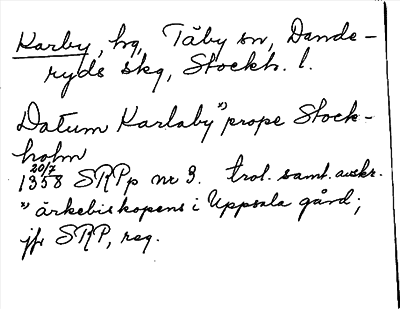 Karby, hg, Täby sn, Dande-
ryds skg, Stockh. l.
Datum Karlaby" prope Stock-
holm
20/7
1358 SRPp nr 3. trol. samt. avskr.
" ärkebiskopens i Uppsala gård;
jfr SRP, reg.